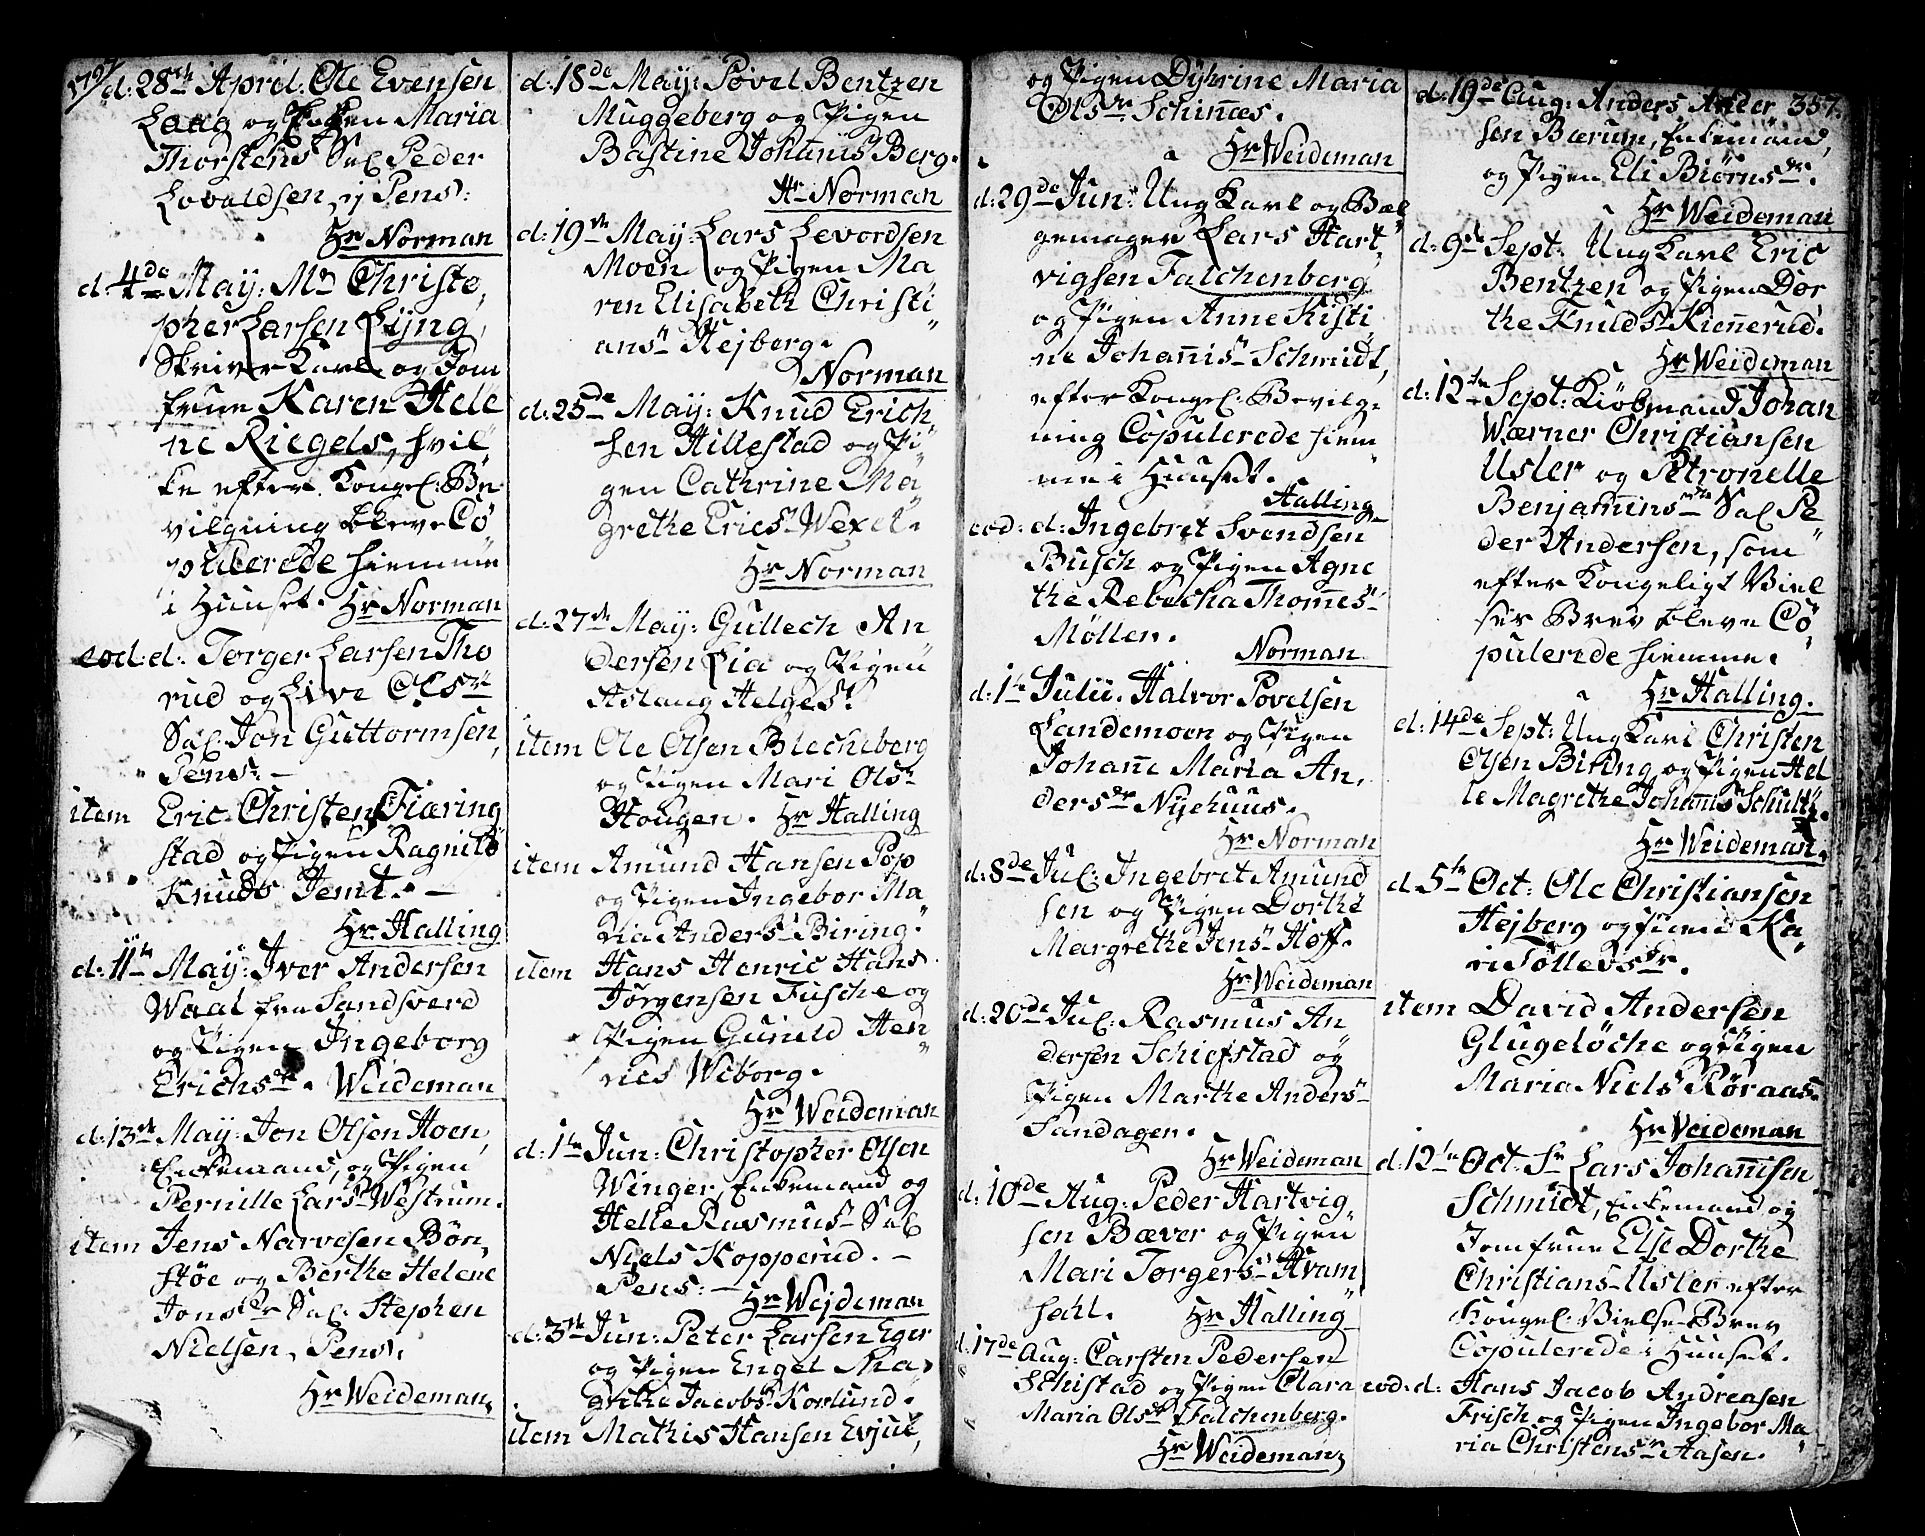 d. 28de April. Ole Evensen
Laag og Maria
Thorstens Sal Peder
Lovaldsen, ij Pens:
Hr Norman
d: 4de May: Mr Christo
pher Larsen Lyng,
Skriver Karl og Jom
frue Karen Hele
ne Riegels, hvil
ke efter Kongel: Be
vilgning bleve Co
pulerede hiemme
i Huuset. Hr Norman
eod: d: Torger Larsen Tho
rud og Live Olsdr
Sal. Jon Guttormsen,
Pens: –
item Eric Christen Fiæring
stad og Pigen Ragnild
Knuds Jemt. –
Hr Halling
d: 11te May: Iver Andersen
Waal fra Sandsverd
og Pigen Ingeborg
Erichsdr. Weideman
d: 13de May: Jon Olsen Hoen,
Enkemand, og Pigen
Pernille Lars Westrum.
item Jens Narvesen Bøn,
støe og Berthe Helene
Jonsdr Sal. Stephen
Nielsen, Pens.
Hr Weideman
d: 18de May: Povel Bentzen
Muggeberg og Pigen
Bastine Johanis Berg.
Hr Norman
d: 19de May: Lars Levordsen
Moen og Pigen Ma
ren Elisabeth Christi
ans Hejberg.
Norman
d: 25de May: Knud Erich,
sen Hillestad og Pi
gen Cathrine Ma
grethe Erics Wexel.
Hr Norman
d: 27de May: Gullech An
dersen Lia og Pigen
Aslaug Helges.
item Ole Olsen Blecheberg
og Pigen Mari Ols
Hougen. Hr Halling
item Amund Hansen Pop
og Pigen Ingebor Ma
ria Anders Biring.
item Hans Henric Hans
Jørgensen Fusche og
Pigen Gunild Hen
rics Wiborg.
Hr Weideman
d: 1te Jun: Christopher Olsen
Winger, Enkemand og
Helle Rasmus Sal
Niels Kopperud. –
Pens: – Hr Wejdeman
d: 3de Jun: Peter Larsen Eger
og Pigen Engel Ma,
grethe Jacobs Korlund.
item Mathis Hansen Evjue,
og Pigen Dyhrine Maria
Olsdr Schinæs.
Hr Weideman
d: 29de Jun: Ung Karl og Bæl
gemager Lars Hart,
vigsen Falchenberg
og Pigen Anne Kisti
ne Johannis Schmidt,
efter Kongel: Bevilg,
ning Copulerede hiem
me i Huuset.
Halling
eod: d: Ingebret Svendsen
Busch og Pigen Agne
the Rebecha Thomes
Møller.
Norman
d: 1te Julii: Halvor Povelsen
Sandemoen og Pigen
Johanne Maria An,
dersdr Nyehuus.
Hr Norman
d: 8de Jul: Ingebret Amund
sen og Pigen Dorthe
Margrethe Jens Hoff.
Hr Weideman
d: 20de Jul: Rasmus An
dersen Schiefstad og
Pigen Marthe Anders
Sandager.
Hr Weideman
d: 10de Aug: Peder Hartvig,
sen Bæver og Pigen
Mari Torgers Hvam
sahl. Hr Halling
d: 17de Aug: Carsten Pedersen
Schistad og Pigen Clara
Maria Olsdr Falchenberg.
Hr Weideman
d: 19de Aug: Anders Ander 357.
sen Bærum, Enkemand,
og Pigen Eli Biørnsdr.
Hr Weideman
d: 9de Sept: Ung Karl Eric
Bentzen og Pigen Dor
the Knuds Kiennerud.
Hr Weideman
d: 12te Sept: Kiøbmand Johan
Wærner Christiansen
Usler og Petronelle
Benjamins Sal Pe
der Andersen, som
efter Kongeligt Viel
ses Brev bleve Co
pulerede hiemme.
Hr Halling.
d: 14de Sept: Ung Karl Christen
Olsen Biring og Pigen Hel
le Magrethe Johanis Schultz.
Hr Weideman.
d. 5te Oct: Ole Christiansen
Hejberg og Pigen Ka
ri Tollevsdr.
item David Andersen
Glugeløche og Pigen
Maria Niels Røraas.
Hr Weideman
d: 12te Oct: Sr Lars Johannisen
Schmidt, Enkemand og
Jomfrue Else Dorthe
Christians Usler efter
Kongel: Vielse Brev
Copulerede i Huuset.
eod: d: Hans Jacob Andreasen
Frisch og Pigen Ingebor Ma,
ria Christens Aasen.